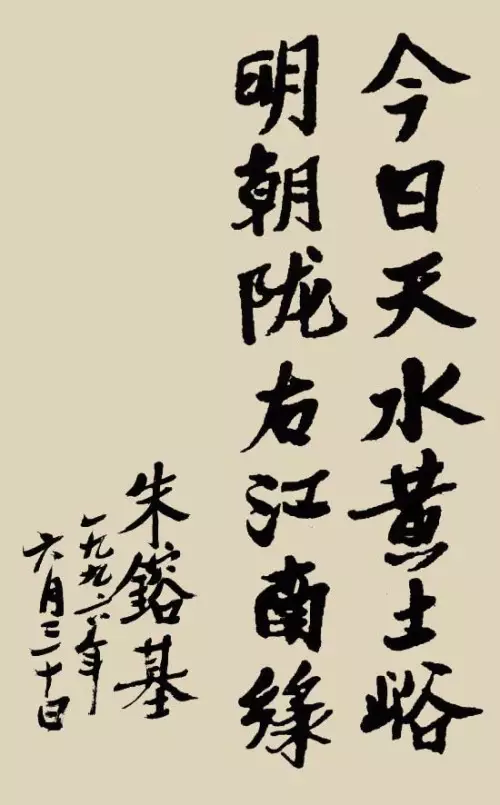 今日天水黄土峪
明朝陇右江南绿
朱镕基
一九九六年
六月三十日